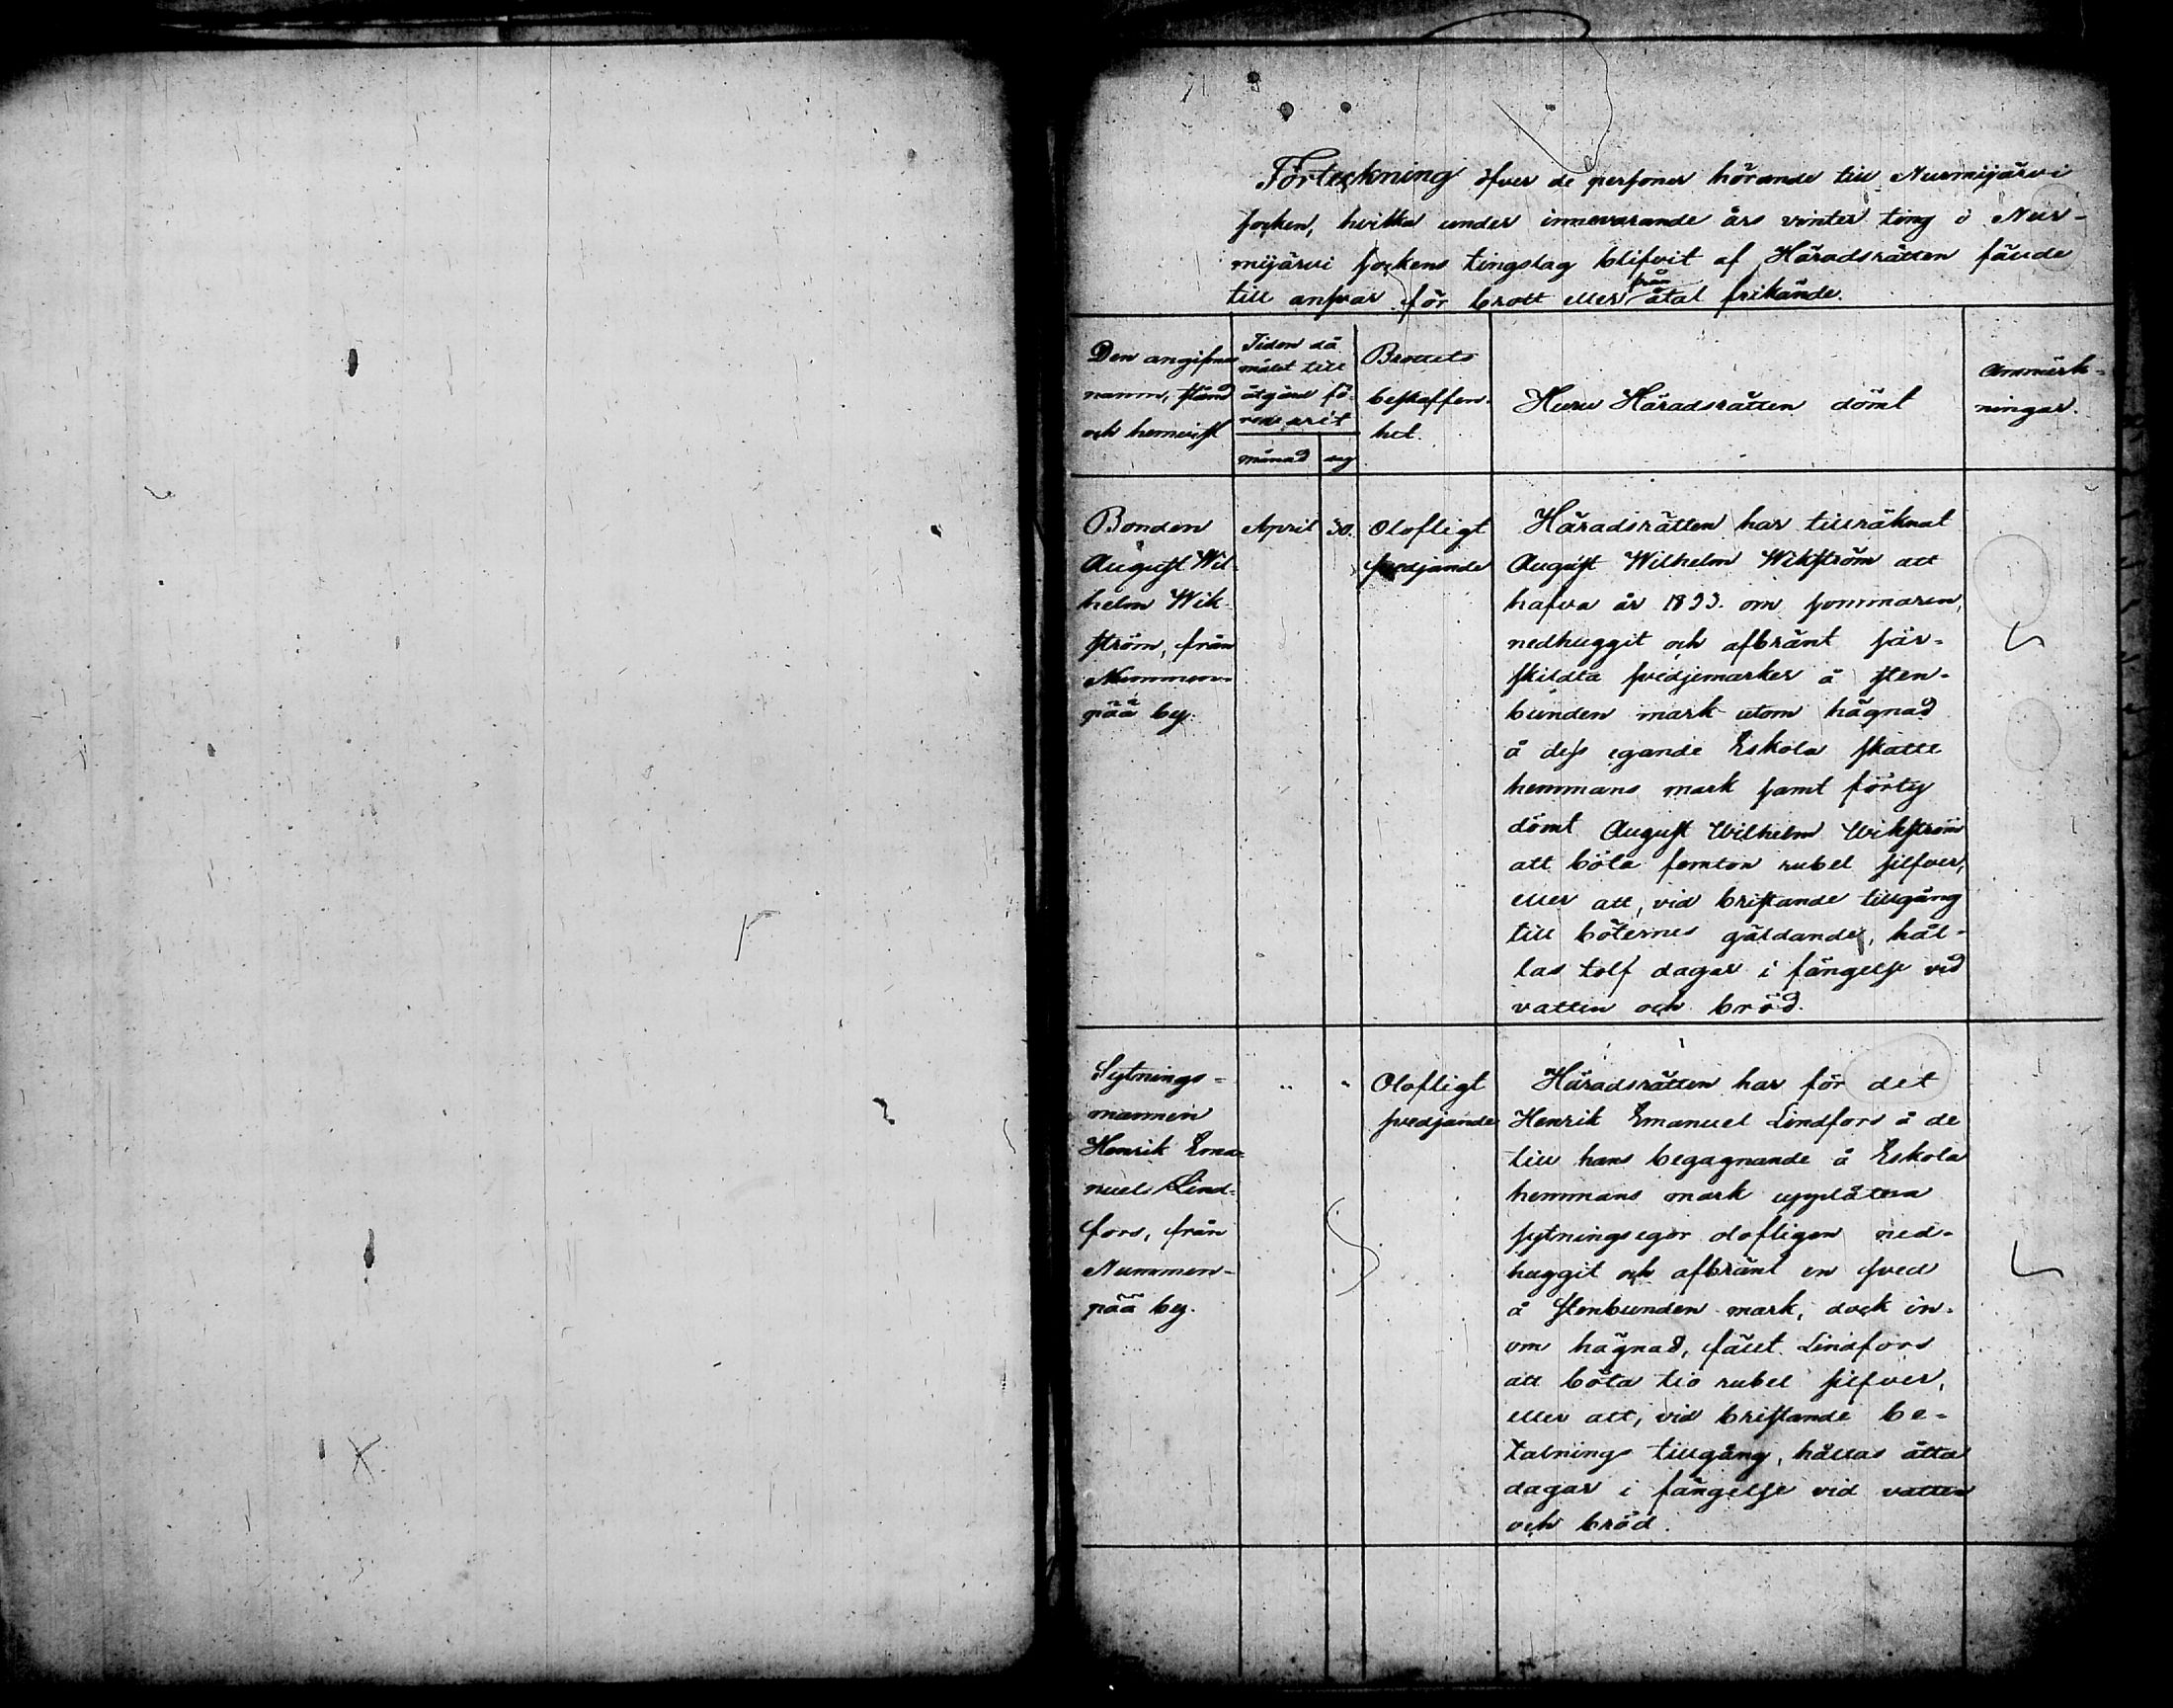 Förteckning öfver de personer hörande till Nurmijärvi
socken, hvilka under innevarande års vinter ting i Nur-
mijärvi sockens tingslag blifvit af Häradsrätten fälde
till ansvar för brott eller från åtal frikände.
Den angifnes
namn, stånd
och hemvist
Tiden då
målet till
åtgärd fö-
revarit
månad dag
Brottets
beskaffen-
het.
Huru Häradsrätten dömt
Anmärk-
ningar.
Bonden
August Wil-
helm Wik-
ström, från
Nummen-
pää by.
April 30.
Olofligt
svedjande
Häradsrätten har tillräknat
August Wilhelm Wikström att
hafva år 1893. om sommaren,
nedhuggit och afbränt sär-
skildta svedjemarker å sten-
bunden mark utom hägnad
å dess egande Eskola skatte
hemmans mark samt förty
dömt August Wilhelm Wikström
att böta femton rubel silfver,
eller att, vid bristande tillgång
till böternes gäldande, hål-
las tolf dagar i fängelse vid
vatten och bröd.
Sytnings-
mannen
Henrik Ema-
nuel Lind-
fors, från
Nummen-
pää by.
" "
Olofligt
svedjande
Häradsrätten har för det
Henrik Emanuel Lindfors å de
till hans begagnande å Eskola
hemmans mark upplåtna
sytningsegor olofligen ned-
huggit och afbränt en sved
å stenbunden mark, dock in-
om hägnad, fält Lindfors
att böta tio rubel silfver,
eller att, vid bristande be-
talnings tillgång, hållas åtta
dagar i fängelse vid vatten
och bröd.